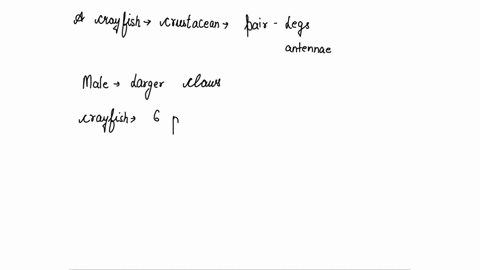 A crayfish → crustacean → pair - Legs
antennae
Male → Larger claws
crayfish → 6 p